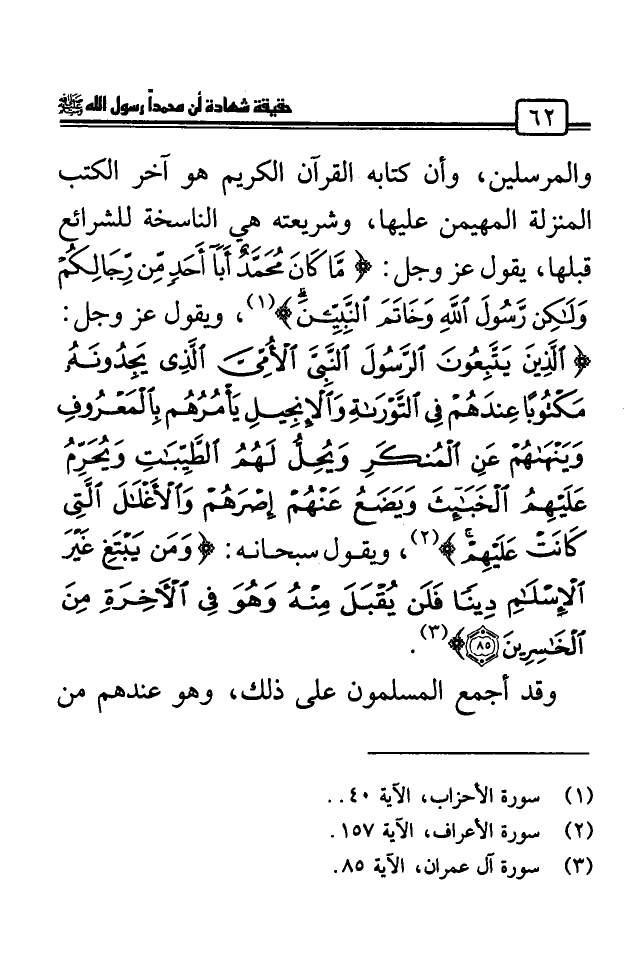 ٦٢
حقيقة شهادة أن محمداً رسول الله ﷺ
والمرسلين، وأن كتابه القرآن الكريم هو آخر الكتب
المنزلة المهيمن عليها، وشريعته هي الناسخة للشرائع
قبلها، يقول عز وجل: ﴿ مَّا كَانَ مُحَمَّدٌ أَبَآ أَحَدٍ مِّن رِّجَالِكُمْ
وَلَٰكِن رَّسُولَ ٱللَّهِ وَخَاتَمَ ٱلنَّبِيِّـۧنَۗ ﴾(١)، ويقول عز وجل:
﴿ ٱلَّذِينَ يَتَّبِعُونَ ٱلرَّسُولَ ٱلنَّبِىَّ ٱلْأُمِّىَّ ٱلَّذِى يَجِدُونَهُۥ
مَكْتُوبًا عِندَهُمْ فِى ٱلتَّوْرَىٰةِ وَٱلْإِنجِيلِ يَأْمُرُهُم بِٱلْمَعْرُوفِ
وَيَنْهَىٰهُمْ عَنِ ٱلْمُنكَرِ وَيُحِلُّ لَهُمُ ٱلطَّيِّبَٰتِ وَيُحَرِّمُ
عَلَيْهِمُ ٱلْخَبَٰٓئِثَ وَيَضَعُ عَنْهُمْ إِصْرَهُمْ وَٱلْأَغْلَٰلَ ٱلَّتِى
كَانَتْ عَلَيْهِمْۚ ﴾(٢)، ويقول سبحانه: ﴿ وَمَن يَبْتَغِ غَيْرَ
ٱلْإِسْلَٰمِ دِينًا فَلَن يُقْبَلَ مِنْهُ وَهُوَ فِى ٱلْأَخِرَةِ مِنَ
ٱلْخَٰسِرِينَ ۝٨٥ ﴾(٣).
وقد أجمع المسلمون على ذلك، وهو عندهم من
(١) سورة الأحزاب، الآية ٤٠..
(٢) سورة الأعراف، الآية ١٥٧.
(٣) سورة آل عمران، الآية ٨٥.